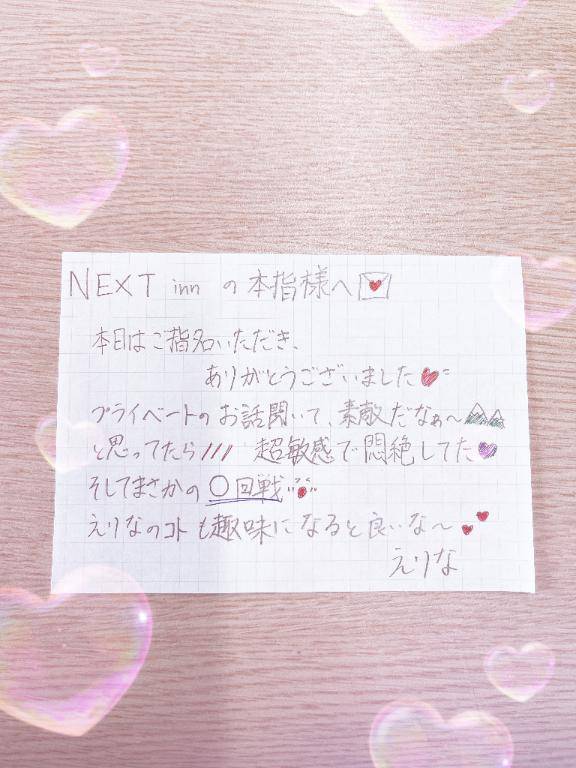 NEXT inn の本指様へ💌
本日はご指名いただき、
ありがとうございました
プライベートのお話聞いて、素敵だなぁ〜
と思ってたら/// 超敏感で悶絶してた
そしてまさかの〇回戦
えりなのコトも趣味になると良いな〜
えりな